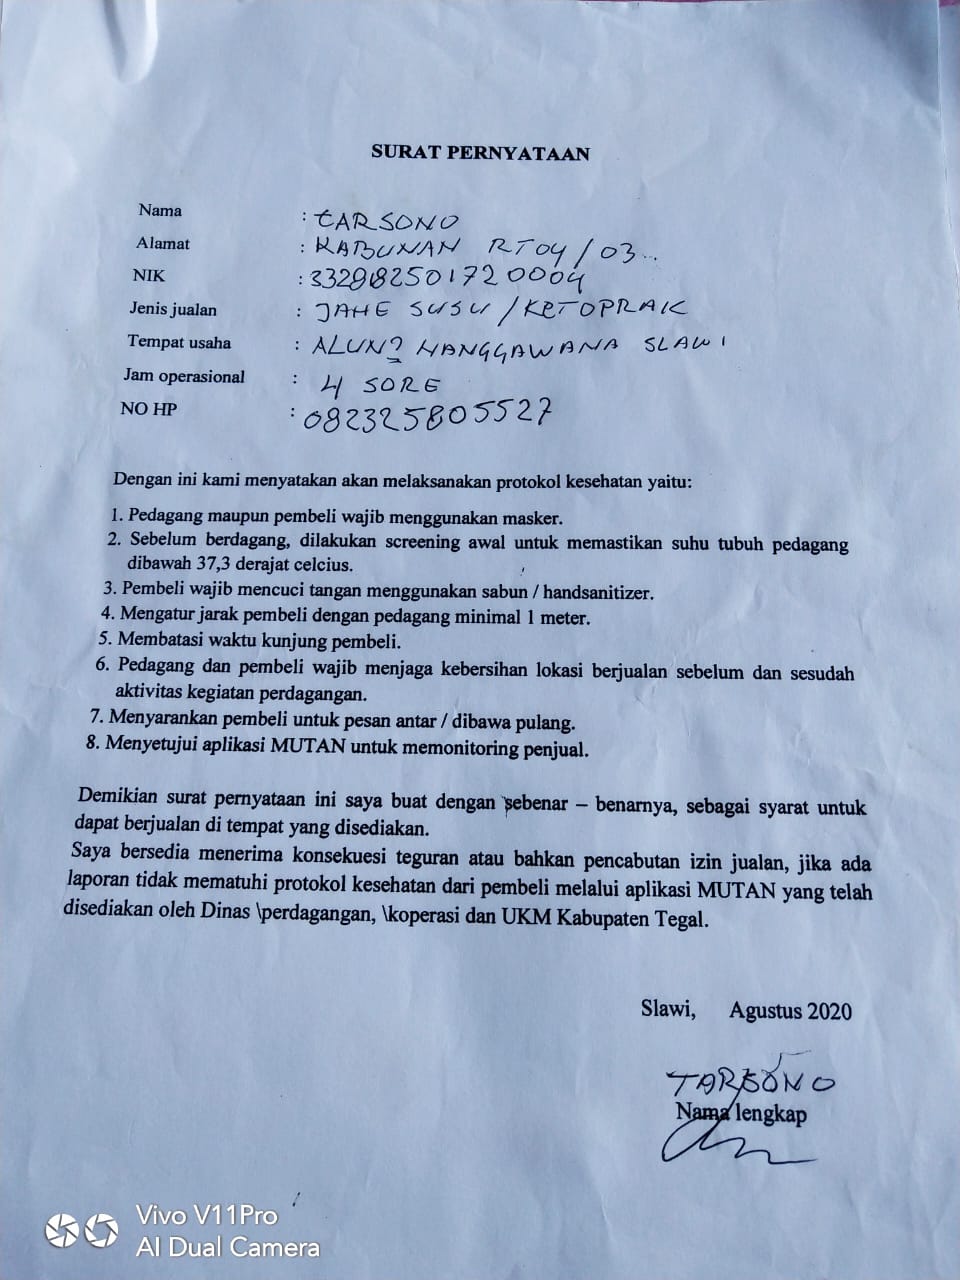 SURAT PERNYATAAN
Nama : TARSONO
Alamat : KABUNAN RT04/03..
NIK
Jenis jualan : JAHE SUSU/KETOPRAK
Tempat usaha : ALUN2 HANGGAWANA SLAWI
Jam operasional : 4 SORE
NO HP : 082325805527
Dengan ini kami menyatakan akan melaksanakan protokol kesehatan yaitu:
1. Pedagang maupun pembeli wajib menggunakan masker.
2. Sebelum berdagang, dilakukan screening awal untuk memastikan suhu tubuh pedagang
dibawah 37,3 derajat celcius.
3. Pembeli wajib mencuci tangan menggunakan sabun / handsanitizer.
4. Mengatur jarak pembeli dengan pedagang minimal 1 meter.
5. Membatasi waktu kunjung pembeli.
6. Pedagang dan pembeli wajib menjaga kebersihan lokasi berjualan sebelum dan sesudah
aktivitas kegiatan perdagangan.
7. Menyarankan pembeli untuk pesan antar / dibawa pulang.
8. Menyetujui aplikasi MUTAN untuk memonitoring penjual.
Demikian surat pernyataan ini saya buat dengan sebenar – benarnya, sebagai syarat untuk
dapat berjualan di tempat yang disediakan.
Saya bersedia menerima konsekuesi teguran atau bahkan pencabutan izin jualan, jika ada
laporan tidak mematuhi protokol kesehatan dari pembeli melalui aplikasi MUTAN yang telah
disediakan oleh Dinas \perdagangan, \koperasi dan UKM Kabupaten Tegal.
Slawi, Agustus 2020
TARSONO
Nama lengkap
Vivo V11Pro
AI Dual Camera